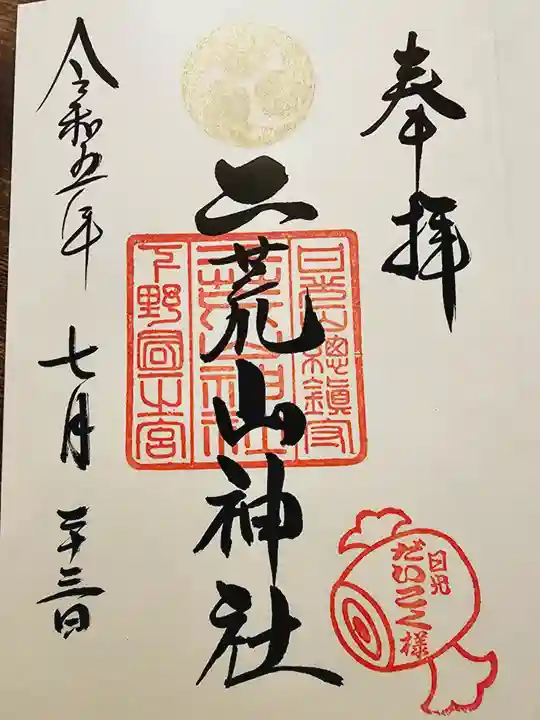 奉拝
日光山總鎮守
二荒山神社
二荒山神社
下野國一之宮
令和五年
七月二十三日
日光
だいこく様